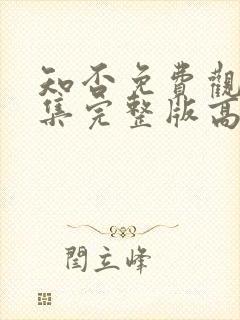 知否免費觀
集完整版高
閆立峰